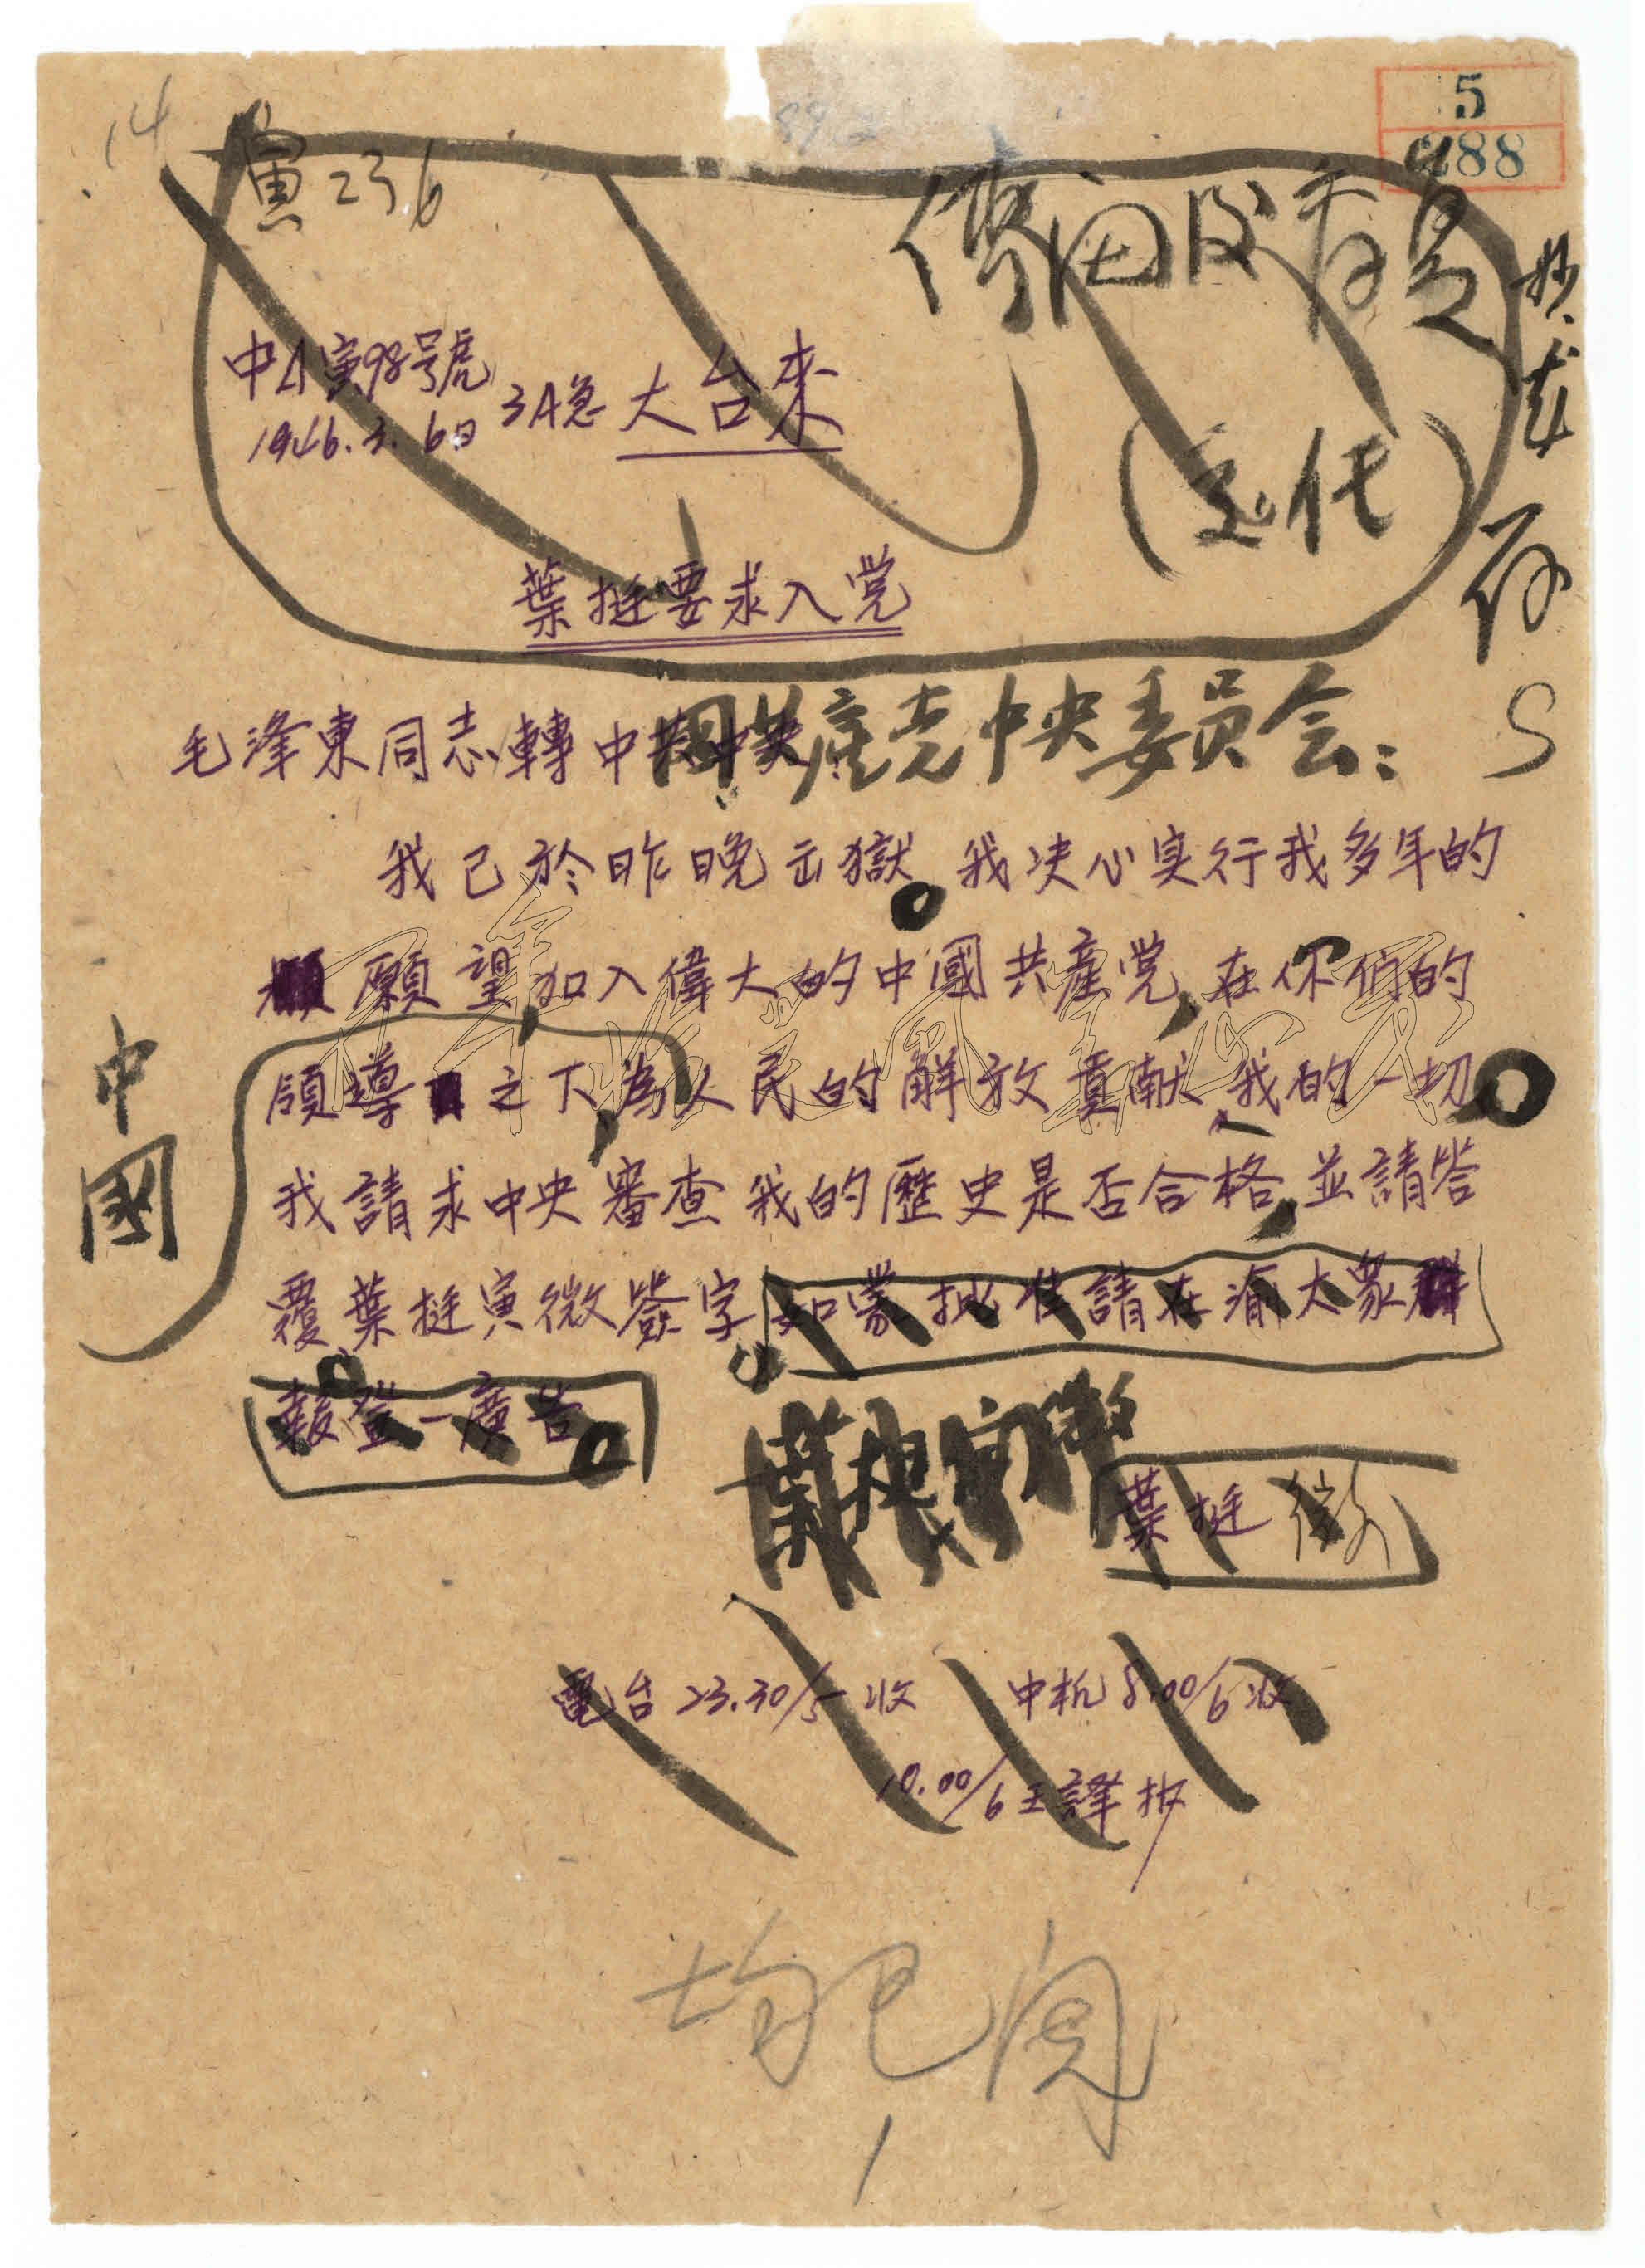 14
5
288
寅236
傳閱後存是
抄
中A寅98號
1946.3.6日
3A急
大台來
葉挺要求入党
毛澤東同志轉中共中央
國共產党中央委員会：
我已於昨晚出獄。我决心实行我多年的
願望，加入偉大的中國共產党，在你们的
領導之下，為人民的解放貢献我的一切。
我請求中央審查我的歷史是否合格，並請答
覆。葉挺寅微簽字。如蒙批准請在渝大眾
報登一廣告。
中國
葉挺寅微
葉挺 微
電台23.30/5收 中机8.00/6收
10.00/6王譯抄
均已閱